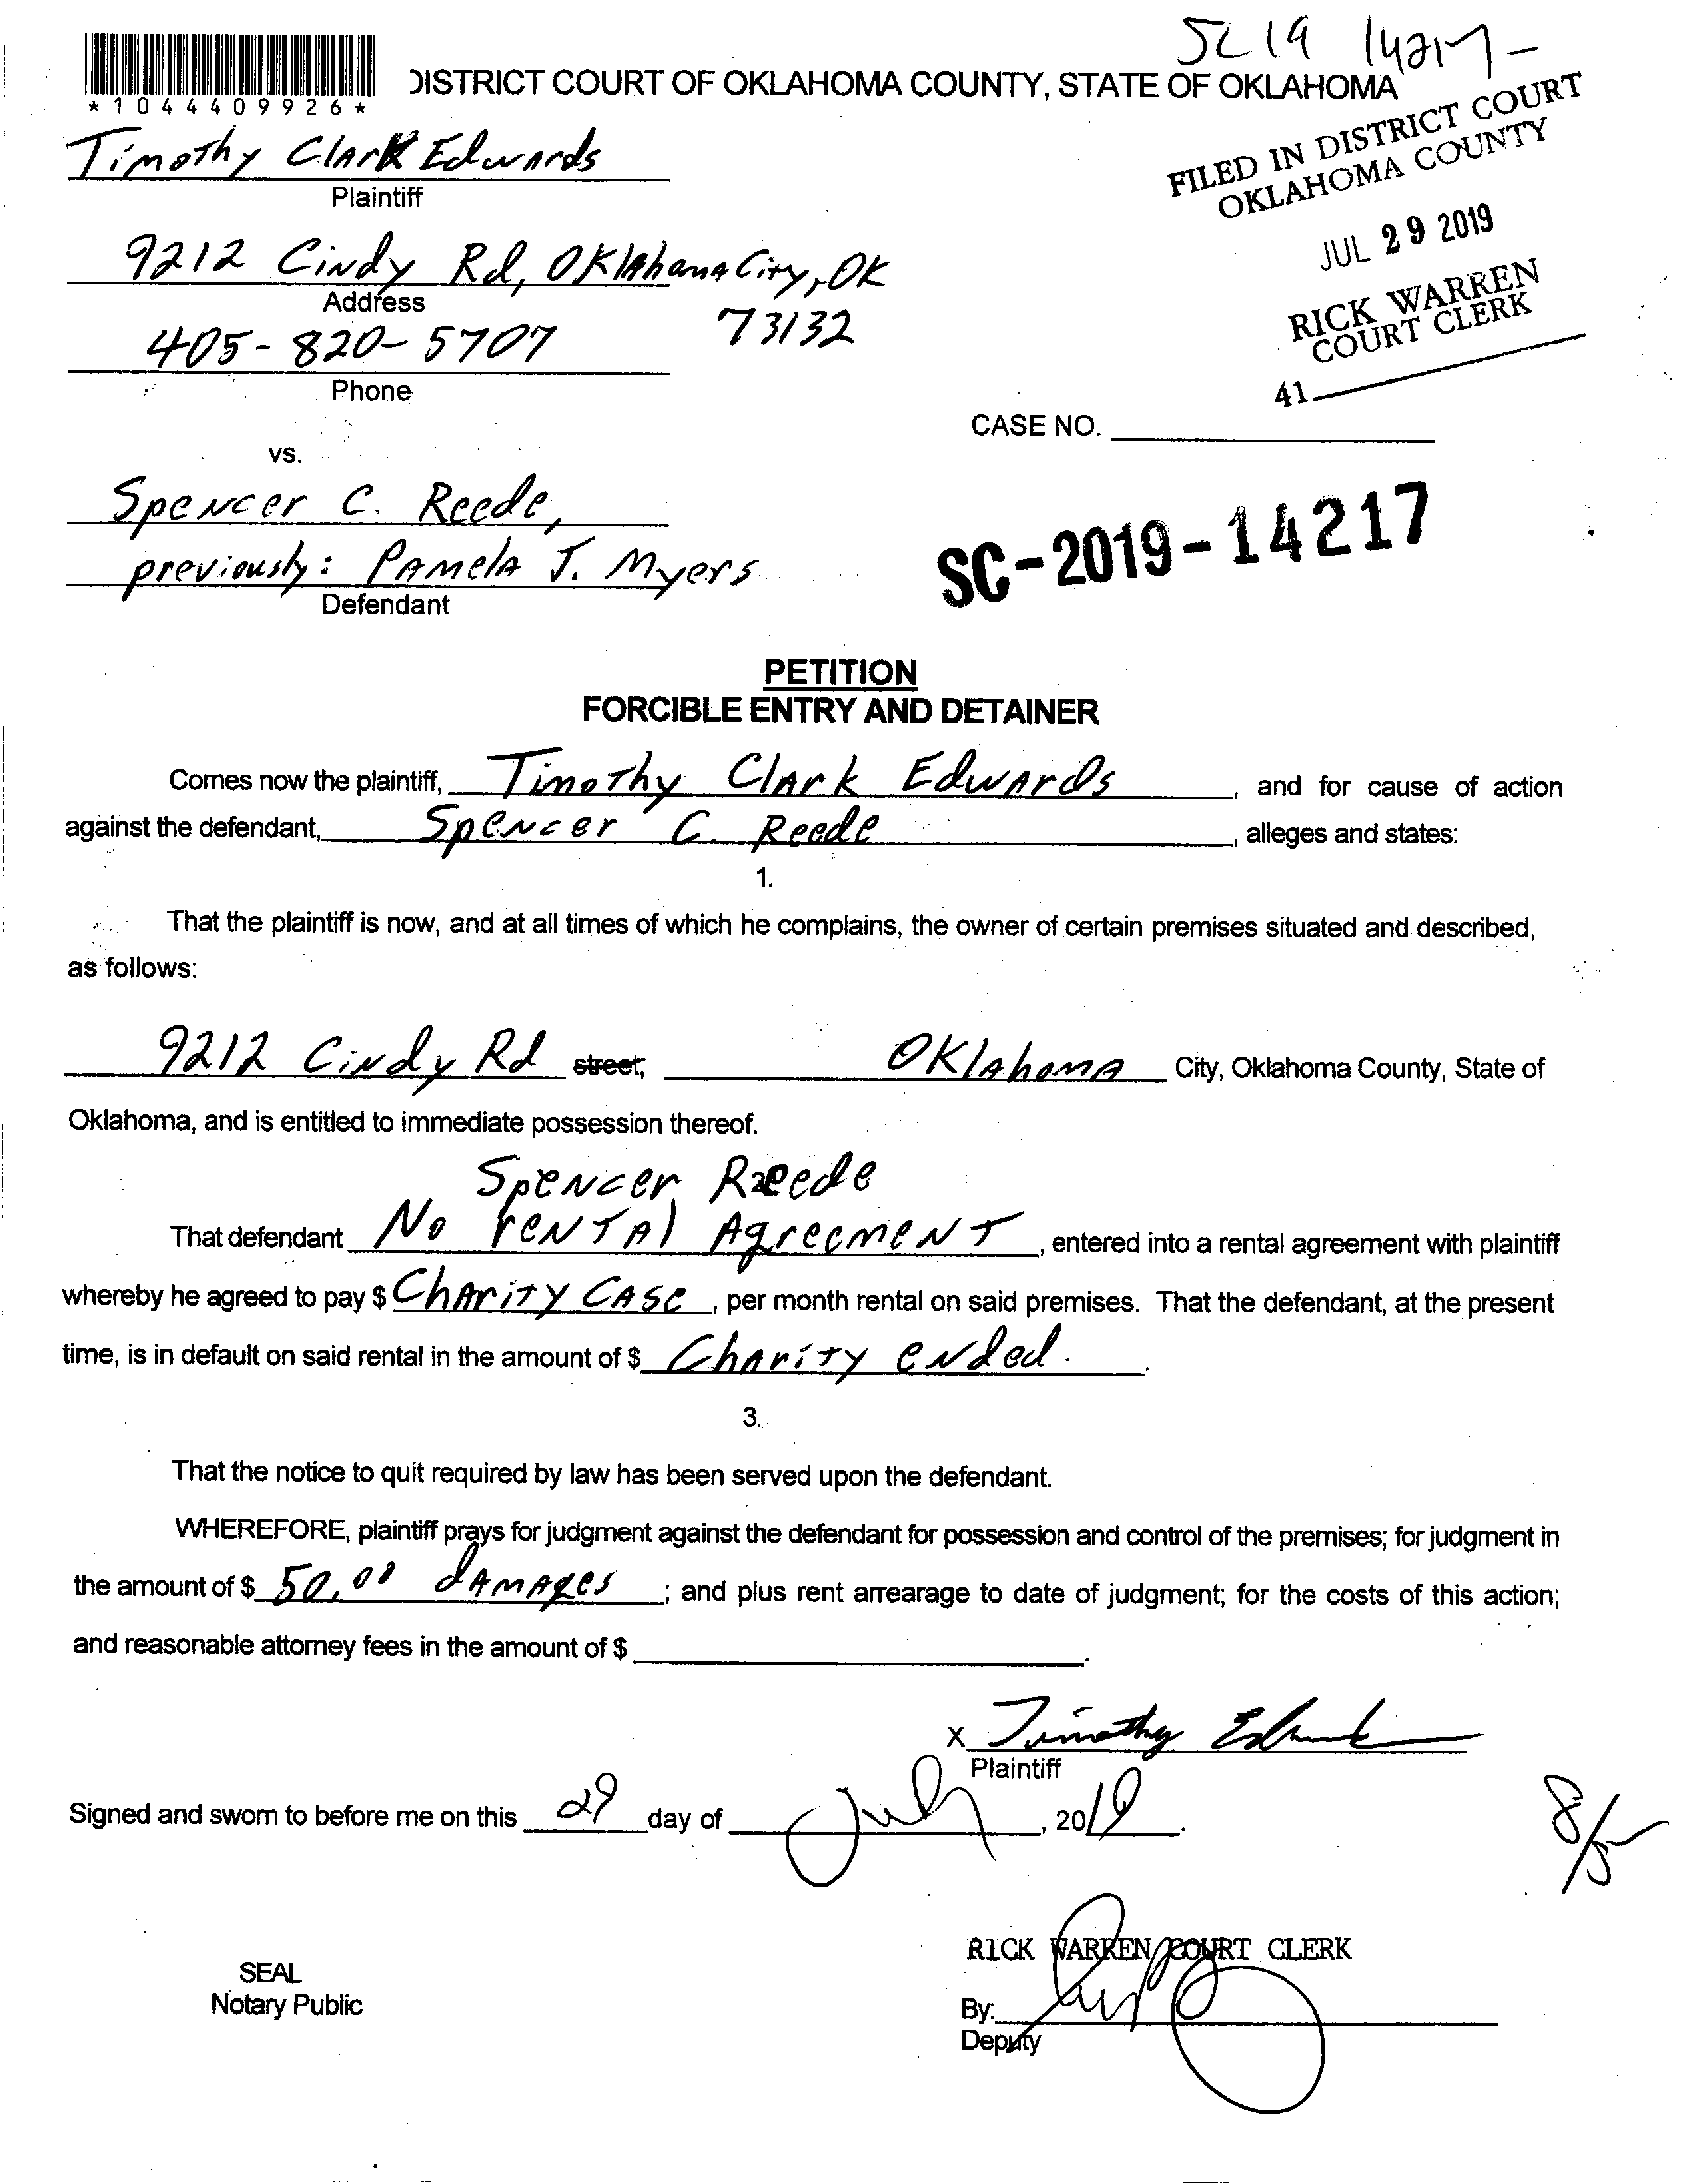 SC19 14217-
*1044409926*
DISTRICT COURT OF OKLAHOMA COUNTY, STATE OF OKLAHOMA
Timothy Clark Edwards
Plaintiff
FILED IN DISTRICT COURT
OKLAHOMA COUNTY
JUL 29 2019
RICK WARREN
COURT CLERK
41
9212 Cindy Rd, Oklahoma City, OK
Address
73132
405-820-5707
Phone
CASE NO.
vs.
Spencer C. Reede,
previously: Pamela J. Myers
Defendant
SC-2019-14217
PETITION
FORCIBLE ENTRY AND DETAINER
Comes now the plaintiff, Timothy Clark Edwards, and for cause of action
against the defendant, Spencer C. Reede, alleges and states:
1.
That the plaintiff is now, and at all times of which he complains, the owner of certain premises situated and described,
as follows:
9212 Cindy Rd street, Oklahoma City, Oklahoma County, State of
Oklahoma, and is entitled to immediate possession thereof.
Spencer Reede
That defendant No rental Agreement, entered into a rental agreement with plaintiff
whereby he agreed to pay $ Charity Case, per month rental on said premises. That the defendant, at the present
time, is in default on said rental in the amount of $ Charity ended.
3.
That the notice to quit required by law has been served upon the defendant.
WHEREFORE, plaintiff prays for judgment against the defendant for possession and control of the premises; for judgment in
the amount of $ 50.00 damages; and plus rent arrearage to date of judgment; for the costs of this action;
and reasonable attorney fees in the amount of $.
X Timothy Edwards
Plaintiff
Signed and sworn to before me on this 29 day of July, 2019.
8/5
RICK WARREN COURT CLERK
SEAL
Notary Public
By:
Deputy